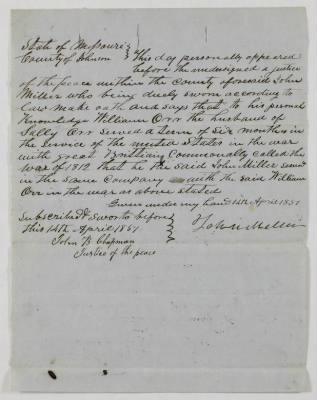 State of Missouri
County of Johnson } This day personally appeared
before the undersigned a justice
of the peace within the county aforesaid John
Miller who being duely sworn according to
Law make oath and says that to his personal
Knowledge William Orr the husband of
Sally Orr served a term of six months in
the service of the united States in the war
with great Brittian Commonally called the
war of 1812 that he the said John Miller served
in the same Company with the said William
Orr in the war as above stated
Given under my hand 14th April 1851
Subscribed & sworn to before
this 14th April 1851
John Miller
John B Chapman
Justice of the peace